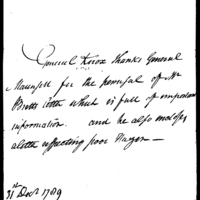 General Knox thanks General
Maunsell for the perusal of Mr
letter which is full of important
information. and he also encloses
a letter respecting poor
31st Decr 1789